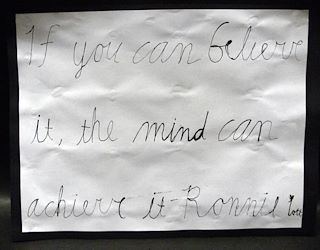 If you can believe
it, the mind can
achieve it-Ronnie Lott